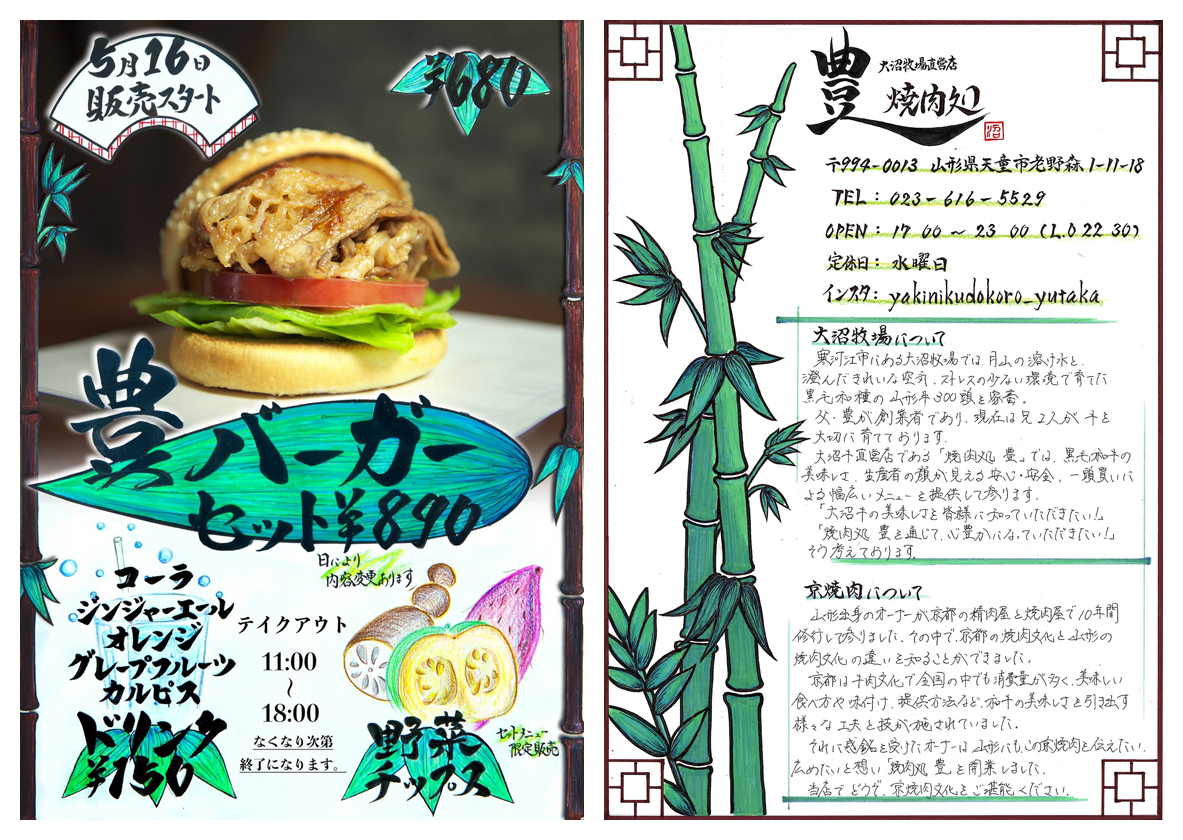 5月16日
販売スタート
¥680
豊
バーガー
セット¥890
日により
内容変更あります
コーラ
ジンジャーエール
オレンジ
グレープフルーツ
カルピス
ドリンク
¥150
テイクアウト
11:00
〜
18:00
なくなり次第
終了になります。
野菜
チップス
セットメニュー
限定販売
豊 大沼牧場直営店
焼肉処
〒994-0013 山形県天童市老野森1-11-18
TEL: 023-616-5529
OPEN: 17 00 〜 23 00 (L.O 22 30)
定休日: 水曜日
インスタ: yakinikudokoro_yutaka
大沼牧場について
寒河江市にある大沼牧場では、月山の溶け水と、
澄んだきれいな空気、ストレスの少ない環境で育てた
黒毛和種の山形牛300頭を容畜。
父・豊が創業者であり、現在は兄2人が牛を
大切に育てております。
大沼牛直営店である「焼肉処 豊」では、黒毛和牛の
美味しさ、生産者の顔が見える安心・安全、一頭買いに
よる幅広いメニューを提供して参ります。
「大沼牛の美味しさを皆様に知っていただきたい!」
「焼肉処 豊を通じて、心豊かになっていただきたい!」
そう考えております。
京焼肉について
山形出身のオーナーが京都の精肉屋と焼肉屋で10年間
修行して参りました。その中で、京都の焼肉文化と山形の
焼肉文化の違いを知ることができました。
京都は牛肉文化で全国の中でも消費量が多く、美味しい
食べ方や味付け、提供方法など、和牛の美味しさを引き出す
様々な工夫と技が施されていました。
それに感銘を受けたオーナーは、山形にもこの京焼肉を伝えたい、
広めたいと想い「焼肉処 豊」を開業しました。
当店でどうぞ、京焼肉文化をご堪能ください。